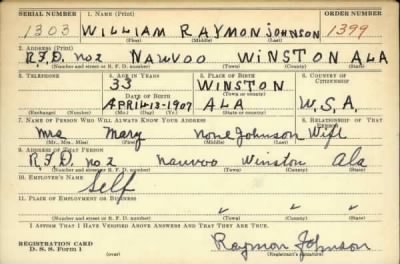 SERIAL NUMBER 1. NAME (Print) ORDER NUMBER
1303 WILLIAM RAYMON JOHNSON 1399
(First) (Middle) (Last)
2. ADDRESS (Print)
R.F.D. no 2 NAUVOO WINSTON ALA
(Number and street or R. F. D. number) (Town) (County) (State)
3. TELEPHONE 4. AGE IN YEARS 5. PLACE OF BIRTH 6. COUNTRY OF CITIZENSHIP
33 WINSTON
DATE OF BIRTH (Town or county)
APRIL-13-1907 ALA U.S.A.
(Exchange) (Number) (Mo.) (Day) (Yr.) (State or country)
7. NAME OF PERSON WHO WILL ALWAYS KNOW YOUR ADDRESS 8. RELATIONSHIP OF THAT PERSON
Mrs Mary None Johnson Wife
(Mr., Mrs., Miss) (First) (Middle) (Last)
9. ADDRESS OF THAT PERSON
R.F.D. no 2 nauvoo Winston Ala
(Number and street or R. F. D. number) (Town) (County) (State)
10. EMPLOYER'S NAME
Self
11. PLACE OF EMPLOYMENT OR BUSINESS
(Number and street or R. F. D. number) (Town) (County) (State)
I AFFIRM THAT I HAVE VERIFIED ABOVE ANSWERS AND THAT THEY ARE TRUE.
REGISTRATION CARD
D. S. S. Form 1 (over) Raymon Johnson
(Registrant's signature)